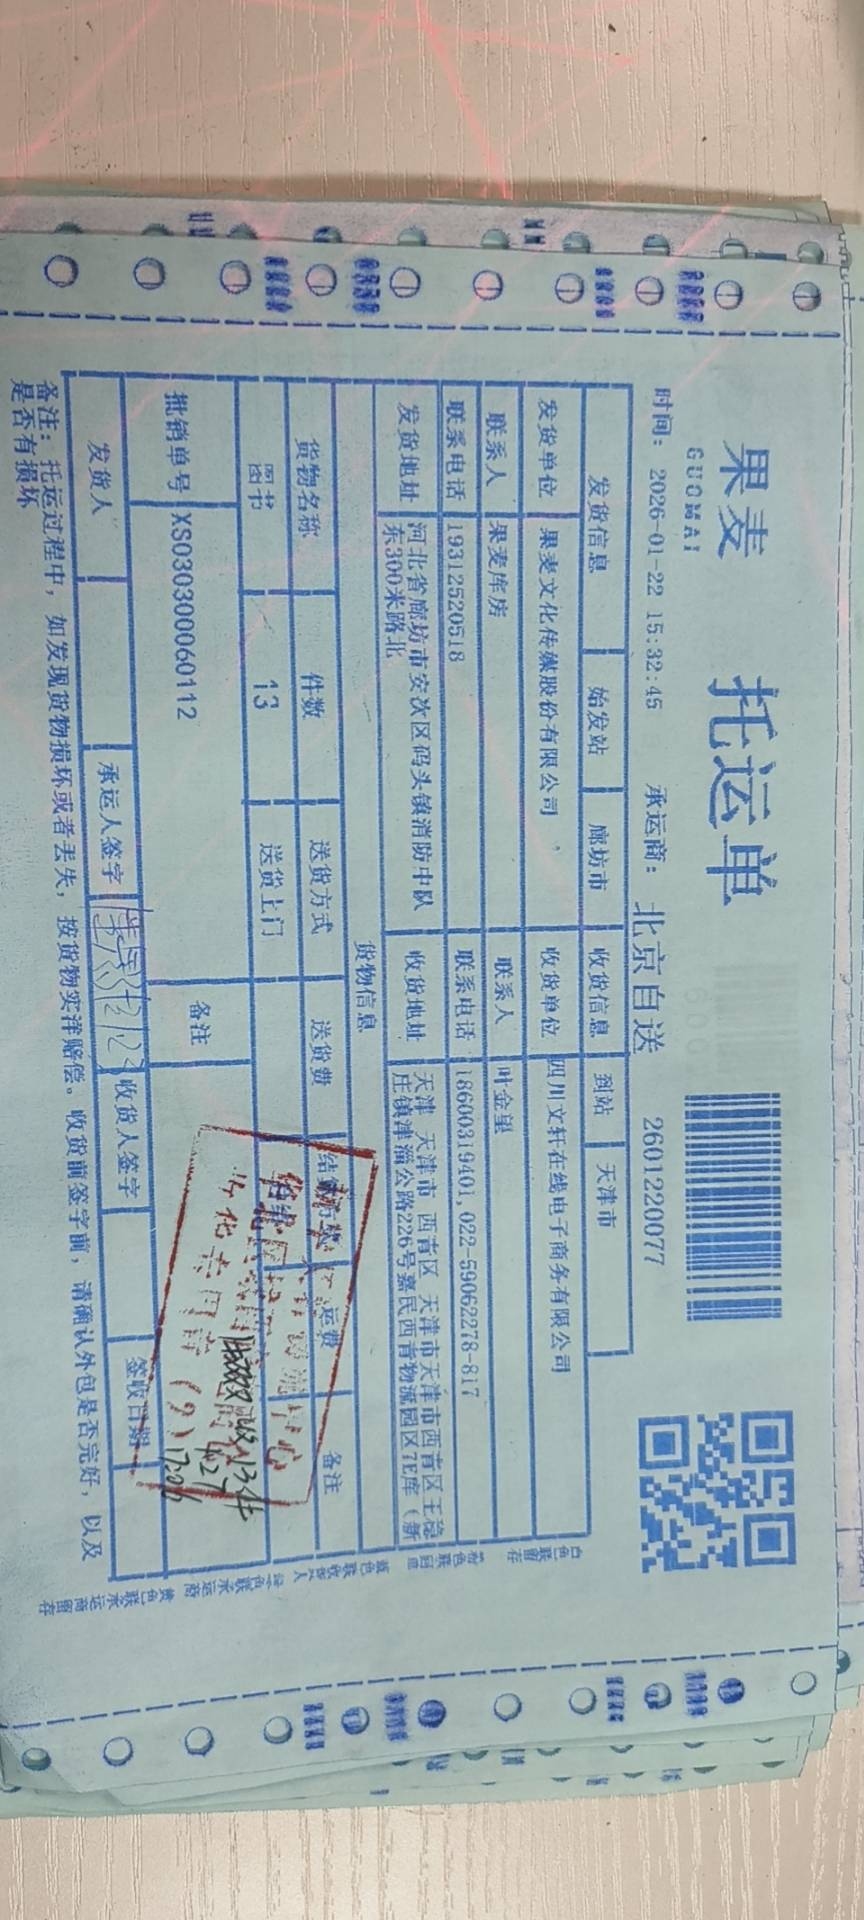 果麦
GUOMAI
托运单
时间: 2026-01-22 15:32:45 承运商: 北京自送 2601220077
发货信息 始发站 廊坊市 收货信息 到站 天津市
发货单位 果麦文化传媒股份有限公司 收货单位 四川文轩在线电子商务有限公司
联系人 果麦库房 联系人 叶金望
联系电话 19312520518 联系电话 18600319401,022-59062278-817
发货地址 河北省廊坊市安次区码头镇消防中队东300米路北 收货地址 天津 天津市 西青区 天津市天津市西青区王稳庄镇津淄公路226号嘉民西青物流园区7E库（新
货物信息
货物名称 件数 送货方式 送货费 运费 备注
图书 13 送货上门
批销单号 XS030300060112 备注
收13件
1.27
17:06
发货人 承运人签字 收货人签字 签收日期
备注: 托运过程中，如发现货物损坏或者丢失，按货物实洋赔偿。收货前签字前，请确认外包是否完好，以及
是否有损坏
白色联留存 粉色联回单 蓝色联收货人 绿色联承运商 黄色联承运商留存